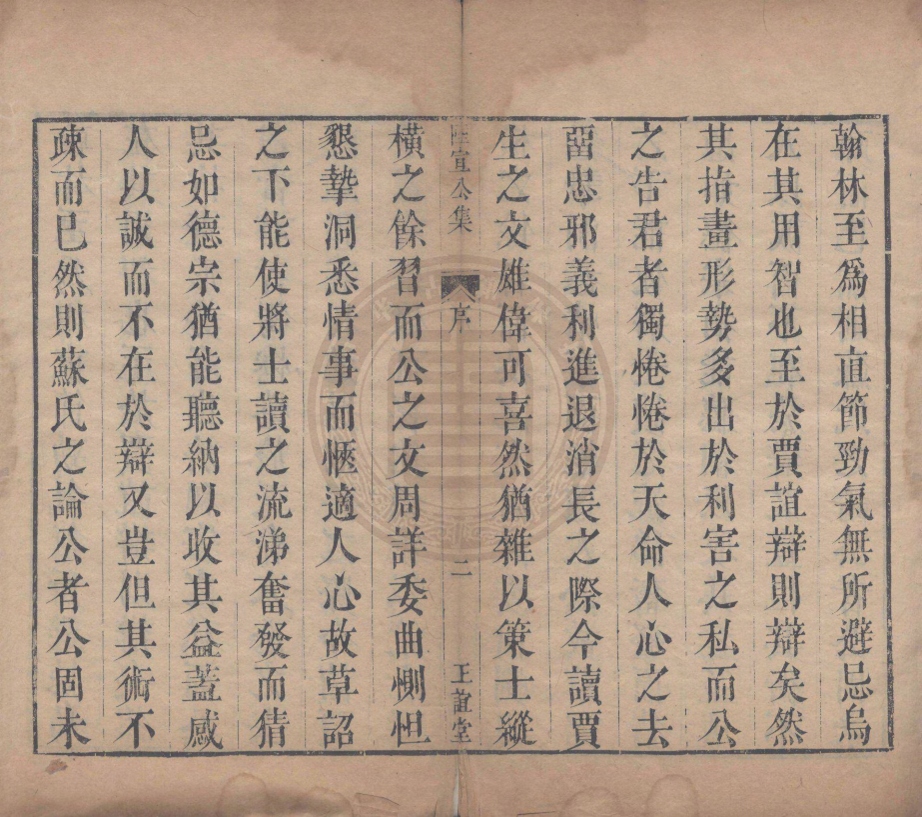 翰林至爲相直節勁氣無所避忌烏
在其用智也至於賈誼辯則辯矣然
其指畫形勢多出於利害之私而公
之告君者獨惓惓於天命人心之去
畱忠邪義利進退消長之際今讀賈
生之文雄偉可喜然猶雜以策士縱
陸宣公集 序 二 正誼堂
橫之餘習而公之文周詳委曲惻怛
懇摯洞悉情事而愜適人心故草詔
之下能使將士讀之流涕奮發而猜
忌如德宗猶能聽納以收其益蓋感
人以誠而不在於辯又豈但其術不
疎而已然則蘇氏之論公者公固未